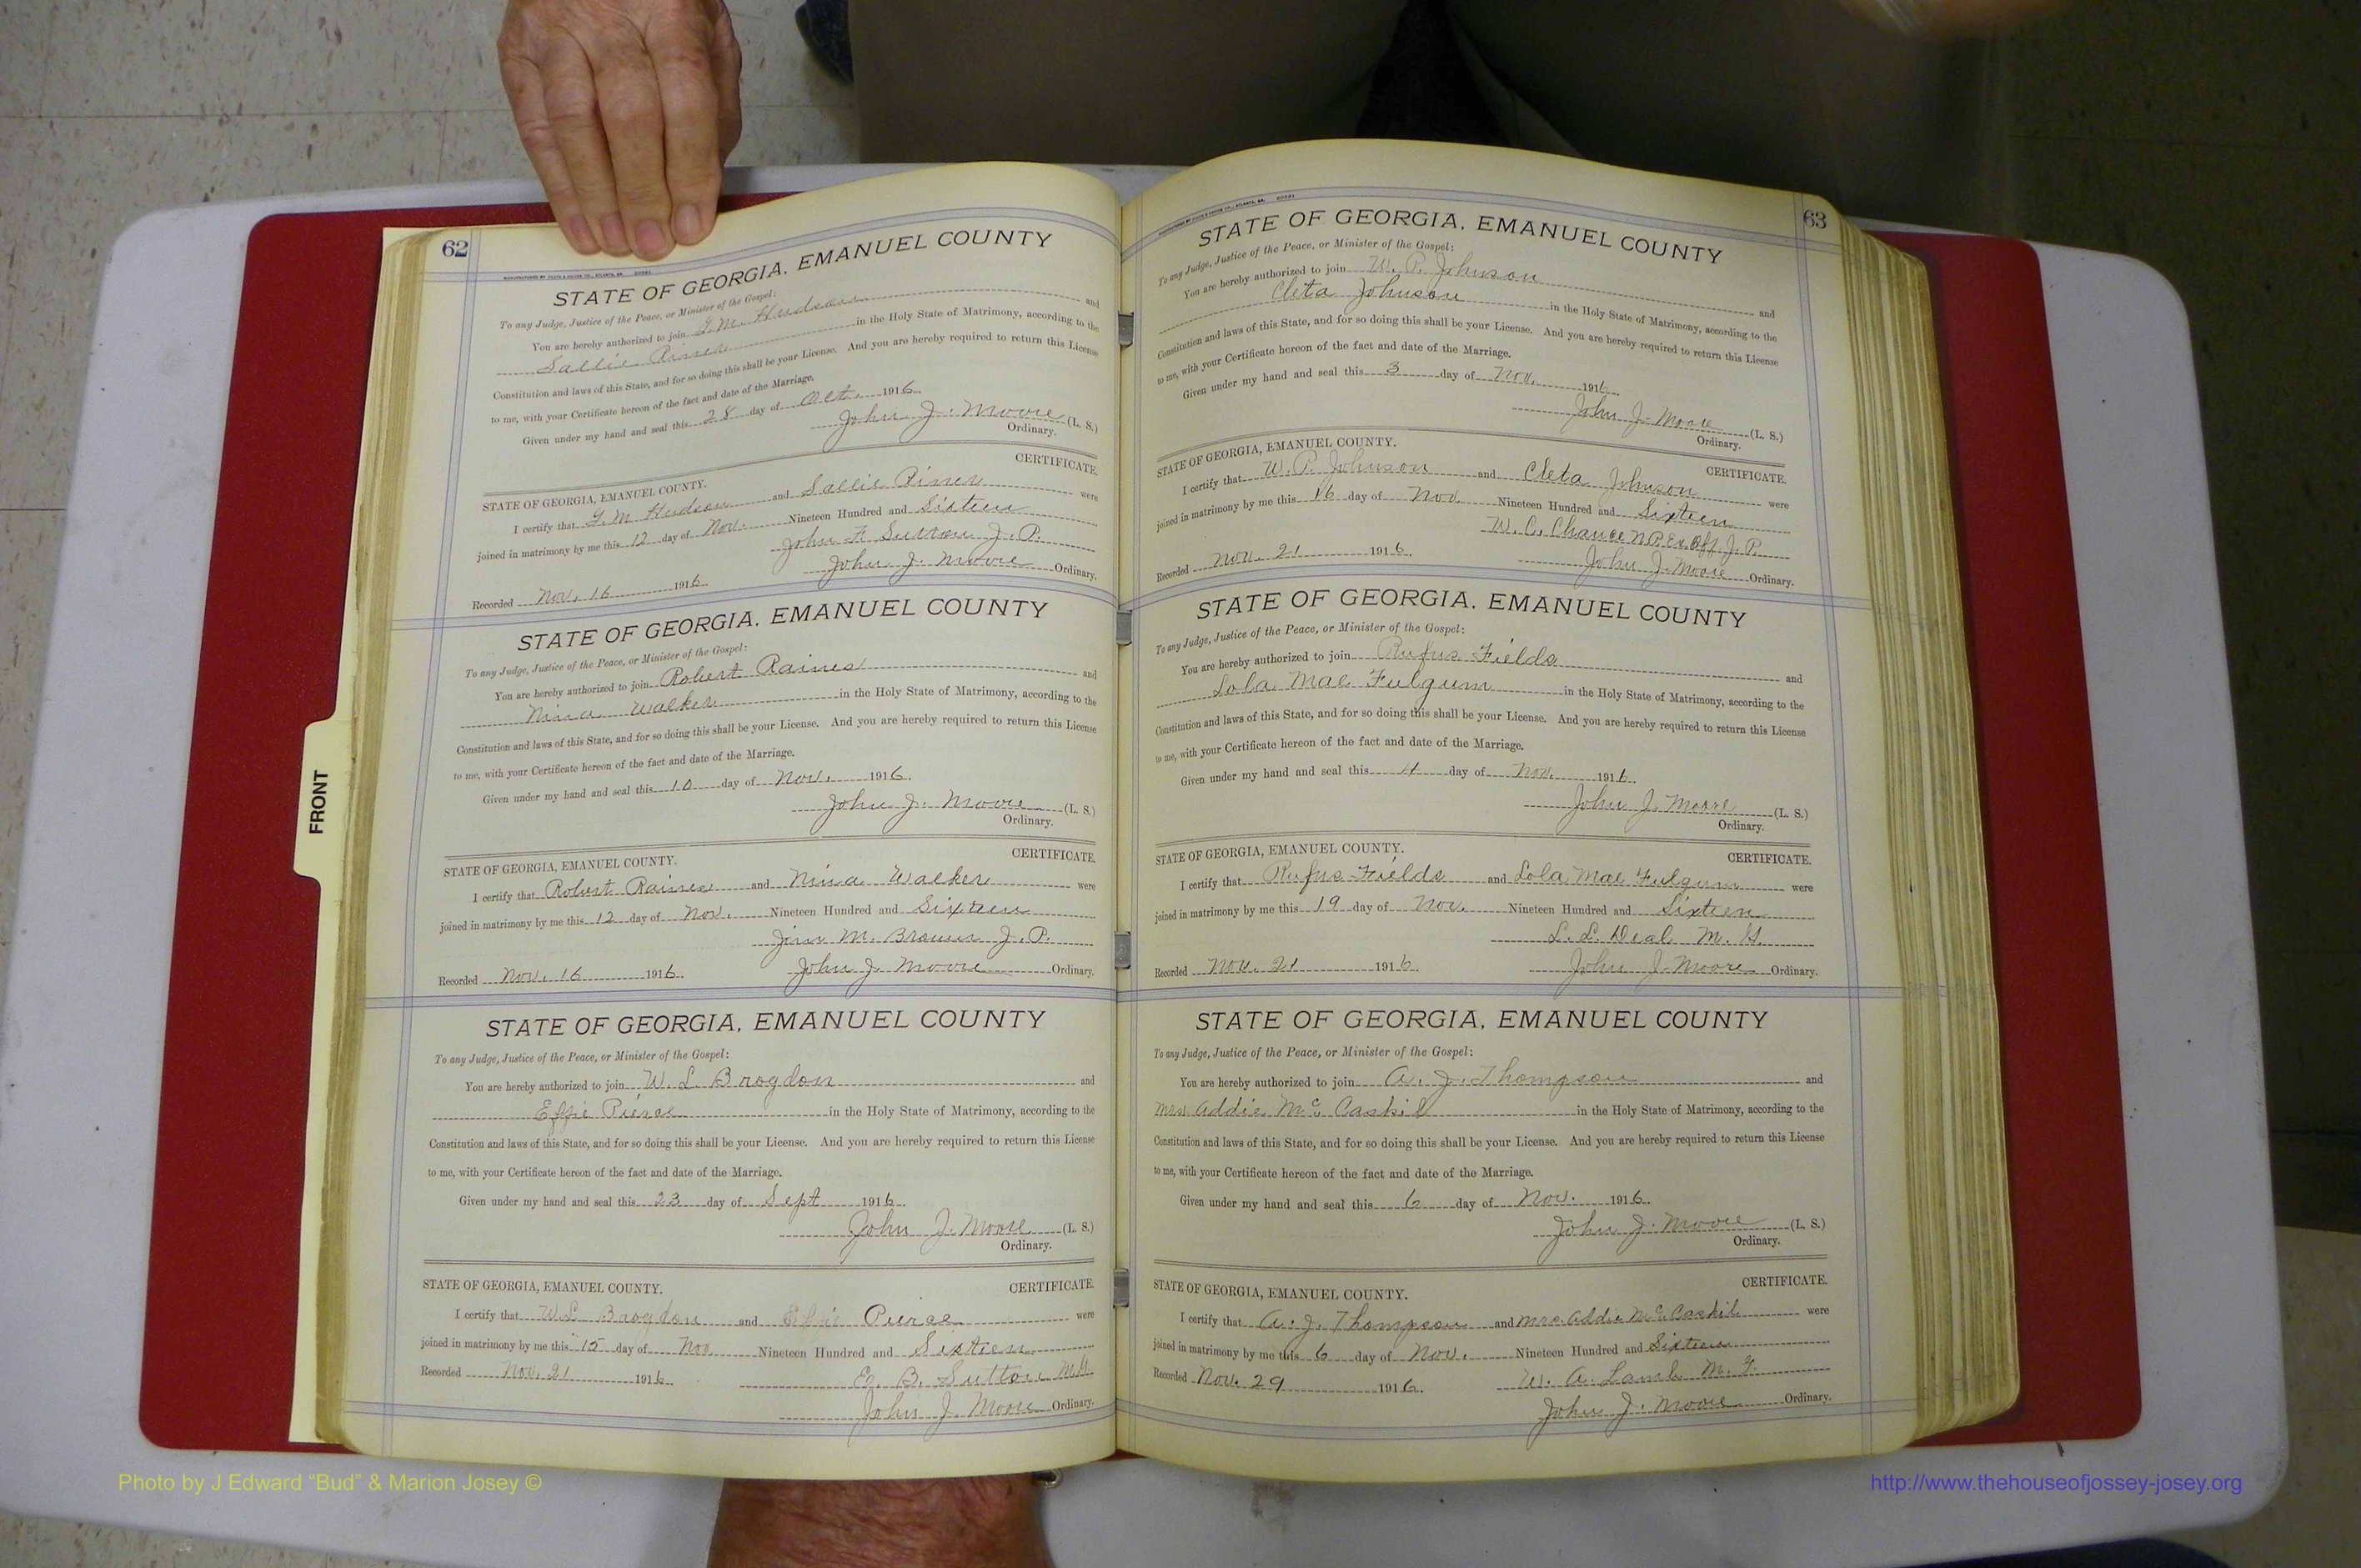 62
STATE OF GEORGIA, EMANUEL COUNTY
To any Judge, Justice of the Peace, or Minister of the Gospel:
You are hereby authorized to join G. M. Hudson and
Sallie Riner in the Holy State of Matrimony, according to the
Constitution and laws of this State, and for so doing this shall be your License. And you are hereby required to return this License
to me, with your Certificate hereon of the fact and date of the Marriage.
Given under my hand and seal this 28 day of Oct. 1916.
John J. Moore (L. S.)
Ordinary.
CERTIFICATE.
STATE OF GEORGIA, EMANUEL COUNTY.
I certify that G. M. Hudson and Sallie Riner were
joined in matrimony by me this 12 day of Nov. Nineteen Hundred and Sixteen
John F. Sutton J. P.
Recorded Nov. 16 1916. John J. Moore Ordinary.
STATE OF GEORGIA, EMANUEL COUNTY
To any Judge, Justice of the Peace, or Minister of the Gospel:
You are hereby authorized to join Robert Raines and
Nina Walker in the Holy State of Matrimony, according to the
Constitution and laws of this State, and for so doing this shall be your License. And you are hereby required to return this License
to me, with your Certificate hereon of the fact and date of the Marriage.
Given under my hand and seal this 10 day of Nov. 1916.
John J. Moore (L. S.)
Ordinary.
STATE OF GEORGIA, EMANUEL COUNTY. CERTIFICATE.
I certify that Robert Raines and Nina Walker were
joined in matrimony by me this 12 day of Nov. Nineteen Hundred and Sixteen
Jim M. Brown J. P.
Recorded Nov. 16 1916. John J. Moore Ordinary.
STATE OF GEORGIA, EMANUEL COUNTY
To any Judge, Justice of the Peace, or Minister of the Gospel:
You are hereby authorized to join W. L. Brogdon and
Effie Pierce in the Holy State of Matrimony, according to the
Constitution and laws of this State, and for so doing this shall be your License. And you are hereby required to return this License
to me, with your Certificate hereon of the fact and date of the Marriage.
Given under my hand and seal this 23 day of Sept 1916.
John J. Moore (L. S.)
Ordinary.
STATE OF GEORGIA, EMANUEL COUNTY. CERTIFICATE.
I certify that W. L. Brogdon and Effie Pierce were
joined in matrimony by me this 15 day of Nov Nineteen Hundred and Sixteen
Recorded Nov. 21 1916. E. B. Sutton M.G.
John J. Moore Ordinary.
63
STATE OF GEORGIA, EMANUEL COUNTY
To any Judge, Justice of the Peace, or Minister of the Gospel:
You are hereby authorized to join W. P. Johnson and
Cleta Johnson in the Holy State of Matrimony, according to the
Constitution and laws of this State, and for so doing this shall be your License. And you are hereby required to return this License
to me, with your Certificate hereon of the fact and date of the Marriage.
Given under my hand and seal this 3 day of Nov. 1916.
John J. Moore (L. S.)
Ordinary.
STATE OF GEORGIA, EMANUEL COUNTY. CERTIFICATE.
I certify that W. P. Johnson and Cleta Johnson were
joined in matrimony by me this 16 day of Nov Nineteen Hundred and Sixteen
W. C. Chance N.P. Ex Off. J. P.
Recorded Nov. 21 1916. John J. Moore Ordinary.
STATE OF GEORGIA, EMANUEL COUNTY
To any Judge, Justice of the Peace, or Minister of the Gospel:
You are hereby authorized to join Rufus Fields and
Lola Mae Fulgum in the Holy State of Matrimony, according to the
Constitution and laws of this State, and for so doing this shall be your License. And you are hereby required to return this License
to me, with your Certificate hereon of the fact and date of the Marriage.
Given under my hand and seal this day of Nov. 1916.
John J. Moore (L. S.)
Ordinary.
STATE OF GEORGIA, EMANUEL COUNTY. CERTIFICATE.
I certify that Rufus Fields and Lola Mae Fulgum were
joined in matrimony by me this 19 day of Nov. Nineteen Hundred and Sixteen
L. L. Deal M. G.
Recorded Nov. 21 1916. John J. Moore Ordinary.
STATE OF GEORGIA, EMANUEL COUNTY
To any Judge, Justice of the Peace, or Minister of the Gospel:
You are hereby authorized to join A. J. Thompson and
Mrs Addie McCaskil in the Holy State of Matrimony, according to the
Constitution and laws of this State, and for so doing this shall be your License. And you are hereby required to return this License
to me, with your Certificate hereon of the fact and date of the Marriage.
Given under my hand and seal this 6 day of Nov. 1916.
John J. Moore (L. S.)
Ordinary.
STATE OF GEORGIA, EMANUEL COUNTY. CERTIFICATE.
I certify that A. J. Thompson and Mrs. Addie McCaskil were
joined in matrimony by me this 6 day of Nov. Nineteen Hundred and Sixteen
Recorded Nov. 29 1916. W. A. Lamb M. G.
John J. Moore Ordinary.
FRONT
Photo by J Edward “Bud” & Marion Josey ©
http://www.thehouseofjossey-josey.org